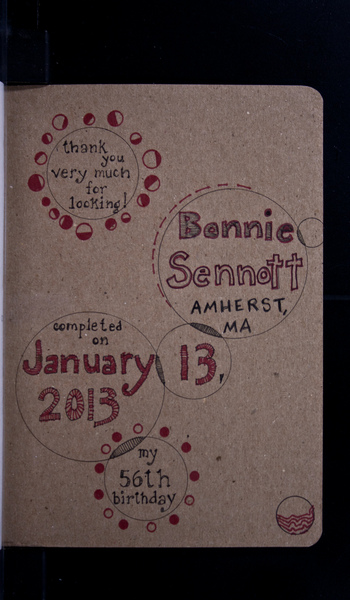 thank
you
very much
for
looking!
Bonnie
Sennott
AMHERST,
MA
completed
on
January 13,
2013
my
56th
birthday